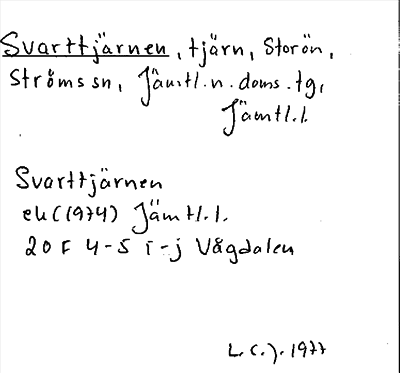 Svarttjärnen, tjärn, Storön,
Ströms sn, Jämtl. n. doms. tg,
Jämtl. l.
Svarttjärnen
ek (1974) Jämtl. l.
20 F 4-5 i-j Vågdalen
L.C.J. 1977